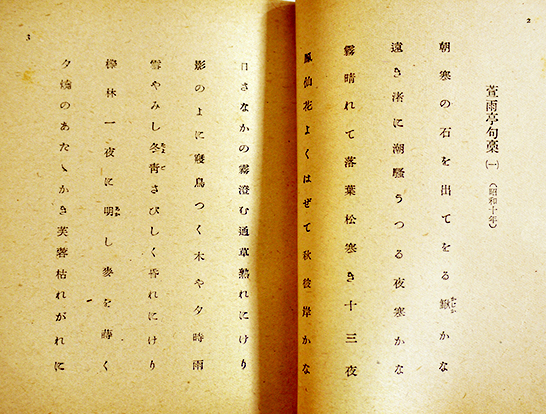 2
萱雨亭句稾㈠（昭和十年）
朝寒の石を出てをる鰍かな
かじか
遠き渚に潮騒うつる夜寒かな
霧晴れて落葉松寒き十三夜
鳳仙花よくはぜて秋彼岸かな
3
日さなかの霧澄む通草熟れにけり
影のよに寢鳥つく木や夕時雨
雪やみし冬靑さびしく昏れにけり
櫟林一夜に明し麥を蒔く
夕燒のあたゝかき芙蓉枯れがれに